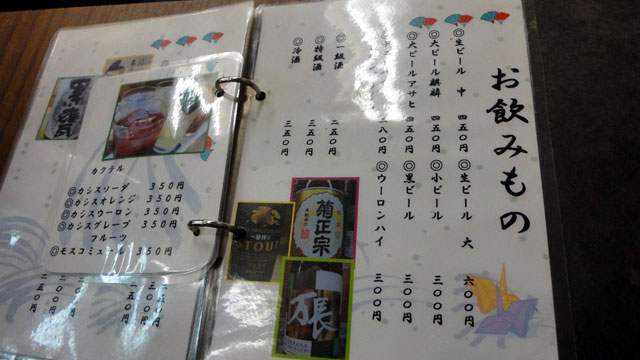 お飲みもの
◎生ビール 中 四五〇円
◎生ビール 大 六〇〇円
◎大ビール麒麟 四五〇円
◎小ビール 三〇〇円
◎大ビールアサヒ 四五〇円
◎黒ビール 三〇〇円
◎ウーロンハイ 三〇〇円
◎一級酒 二五〇円
◎特級酒 三五〇円
◎冷酒 三五〇円
菊正宗
一番搾り
STOUT
カクテル
◎カシスソーダ 350円
◎カシスオレンジ 350円
◎カシスウーロン 350円
◎カシスグレープフルーツ 350円
◎モスコミュール 350円